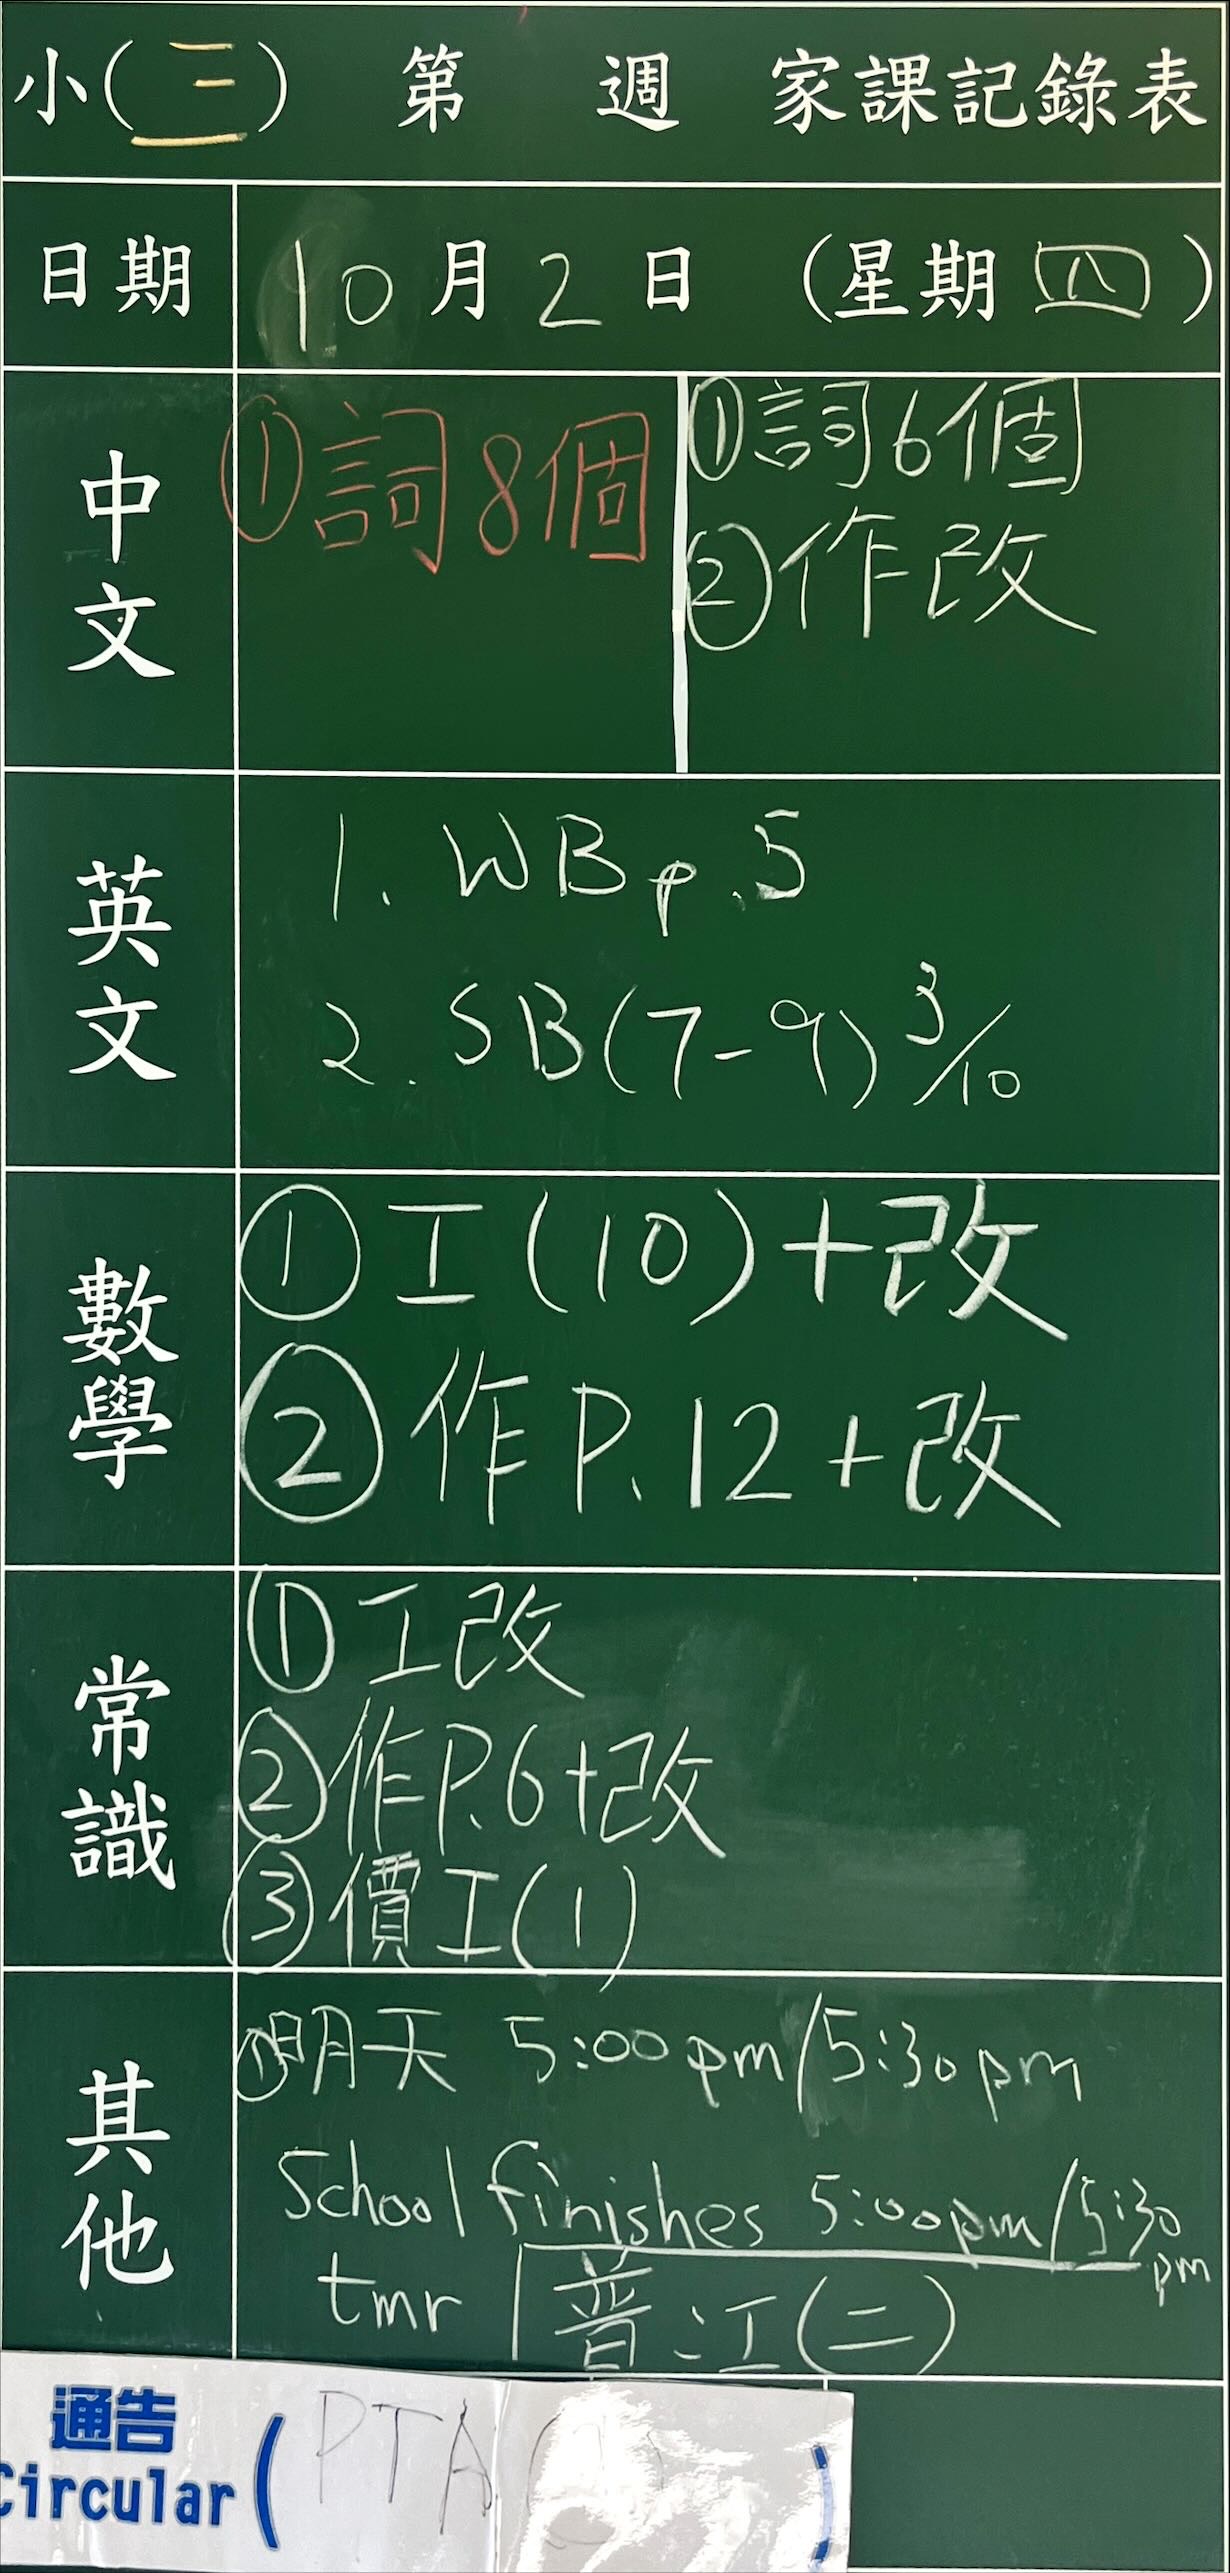 小(三) 第 週 家課記錄表
日期 10月2日 (星期四)
中文
①詞8個
①詞6個
②作改
英文
1. WB p.5
2. SB(7-9) 3/10
數學
①工(10)+改
②作P.12+改
常識
①工改
②作P.6+改
③價工(1)
其他
①明天 5:00pm/5:30pm
School finishes 5:00pm/5:30pm
tmr 普:工(二)
通告
Circular ( PTA )